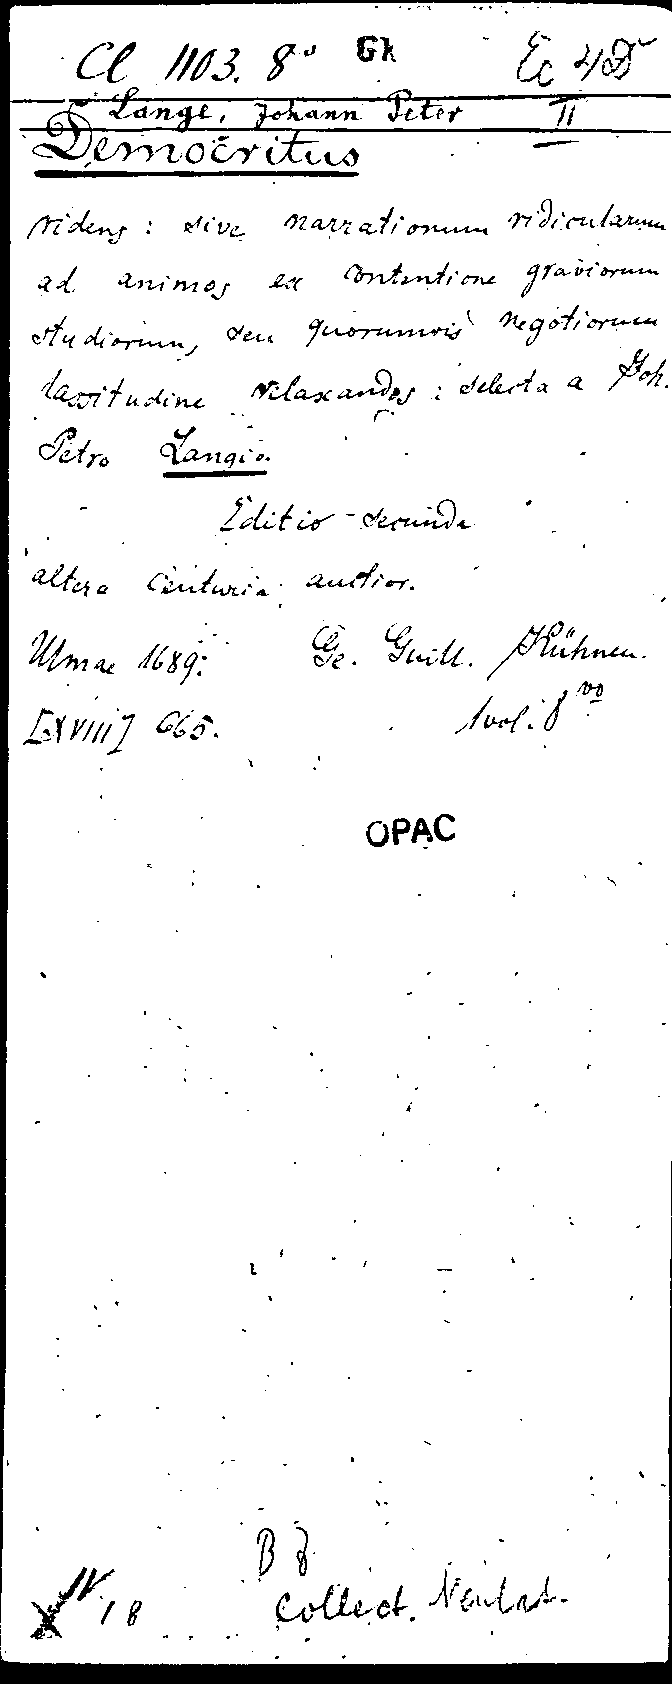 Cl 1103. 8° Gk
Lange, Johann Peter II
Democritus
ridens : sive narrationum ridicularum
ad animos ex contentione graviorum
studiorum, seu quorumvis negotiorum
lassitudine relaxandos : selecta a Joh.
Petro Langio.
Editio secunda
altera centuria auctior.
Ulmae 1689. Ge. Guill. Kühnen.
[XVIII] 665. 1 vol. 8vo
OPAC
B 8
IV. 18 Collect. Neulat.